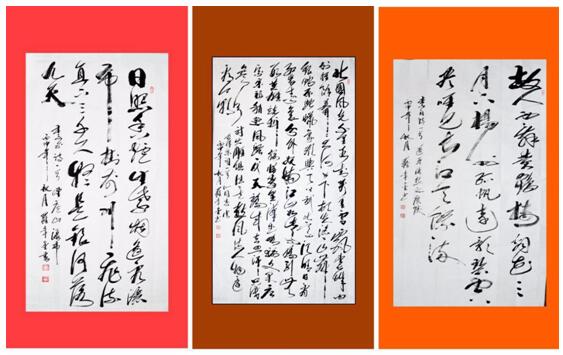 日照香炉生紫烟遥看瀑
布挂前川飞流
直下三千尺疑是银河落
九天
李白诗一首望庐山瀑布
丙申年秋月
北国风光千里冰封万里雪飘望长城内
外惟余莽莽大河上下顿失滔滔山舞
银蛇原驰蜡象欲与天公试比高须晴日看
红装素裹分外妖娆江山如此多娇引无
数英雄竞折腰惜秦皇汉武略输文采
唐宗宋祖稍逊风骚一代天骄成吉思汗只识
弯弓射大雕俱往矣数风流人物还
看今朝
丙申年秋月
故人西辞黄鹤楼烟花三
月下扬州孤帆远影碧空
尽唯见长江天际流
李白诗一首送孟浩然之广陵
丙申年秋月